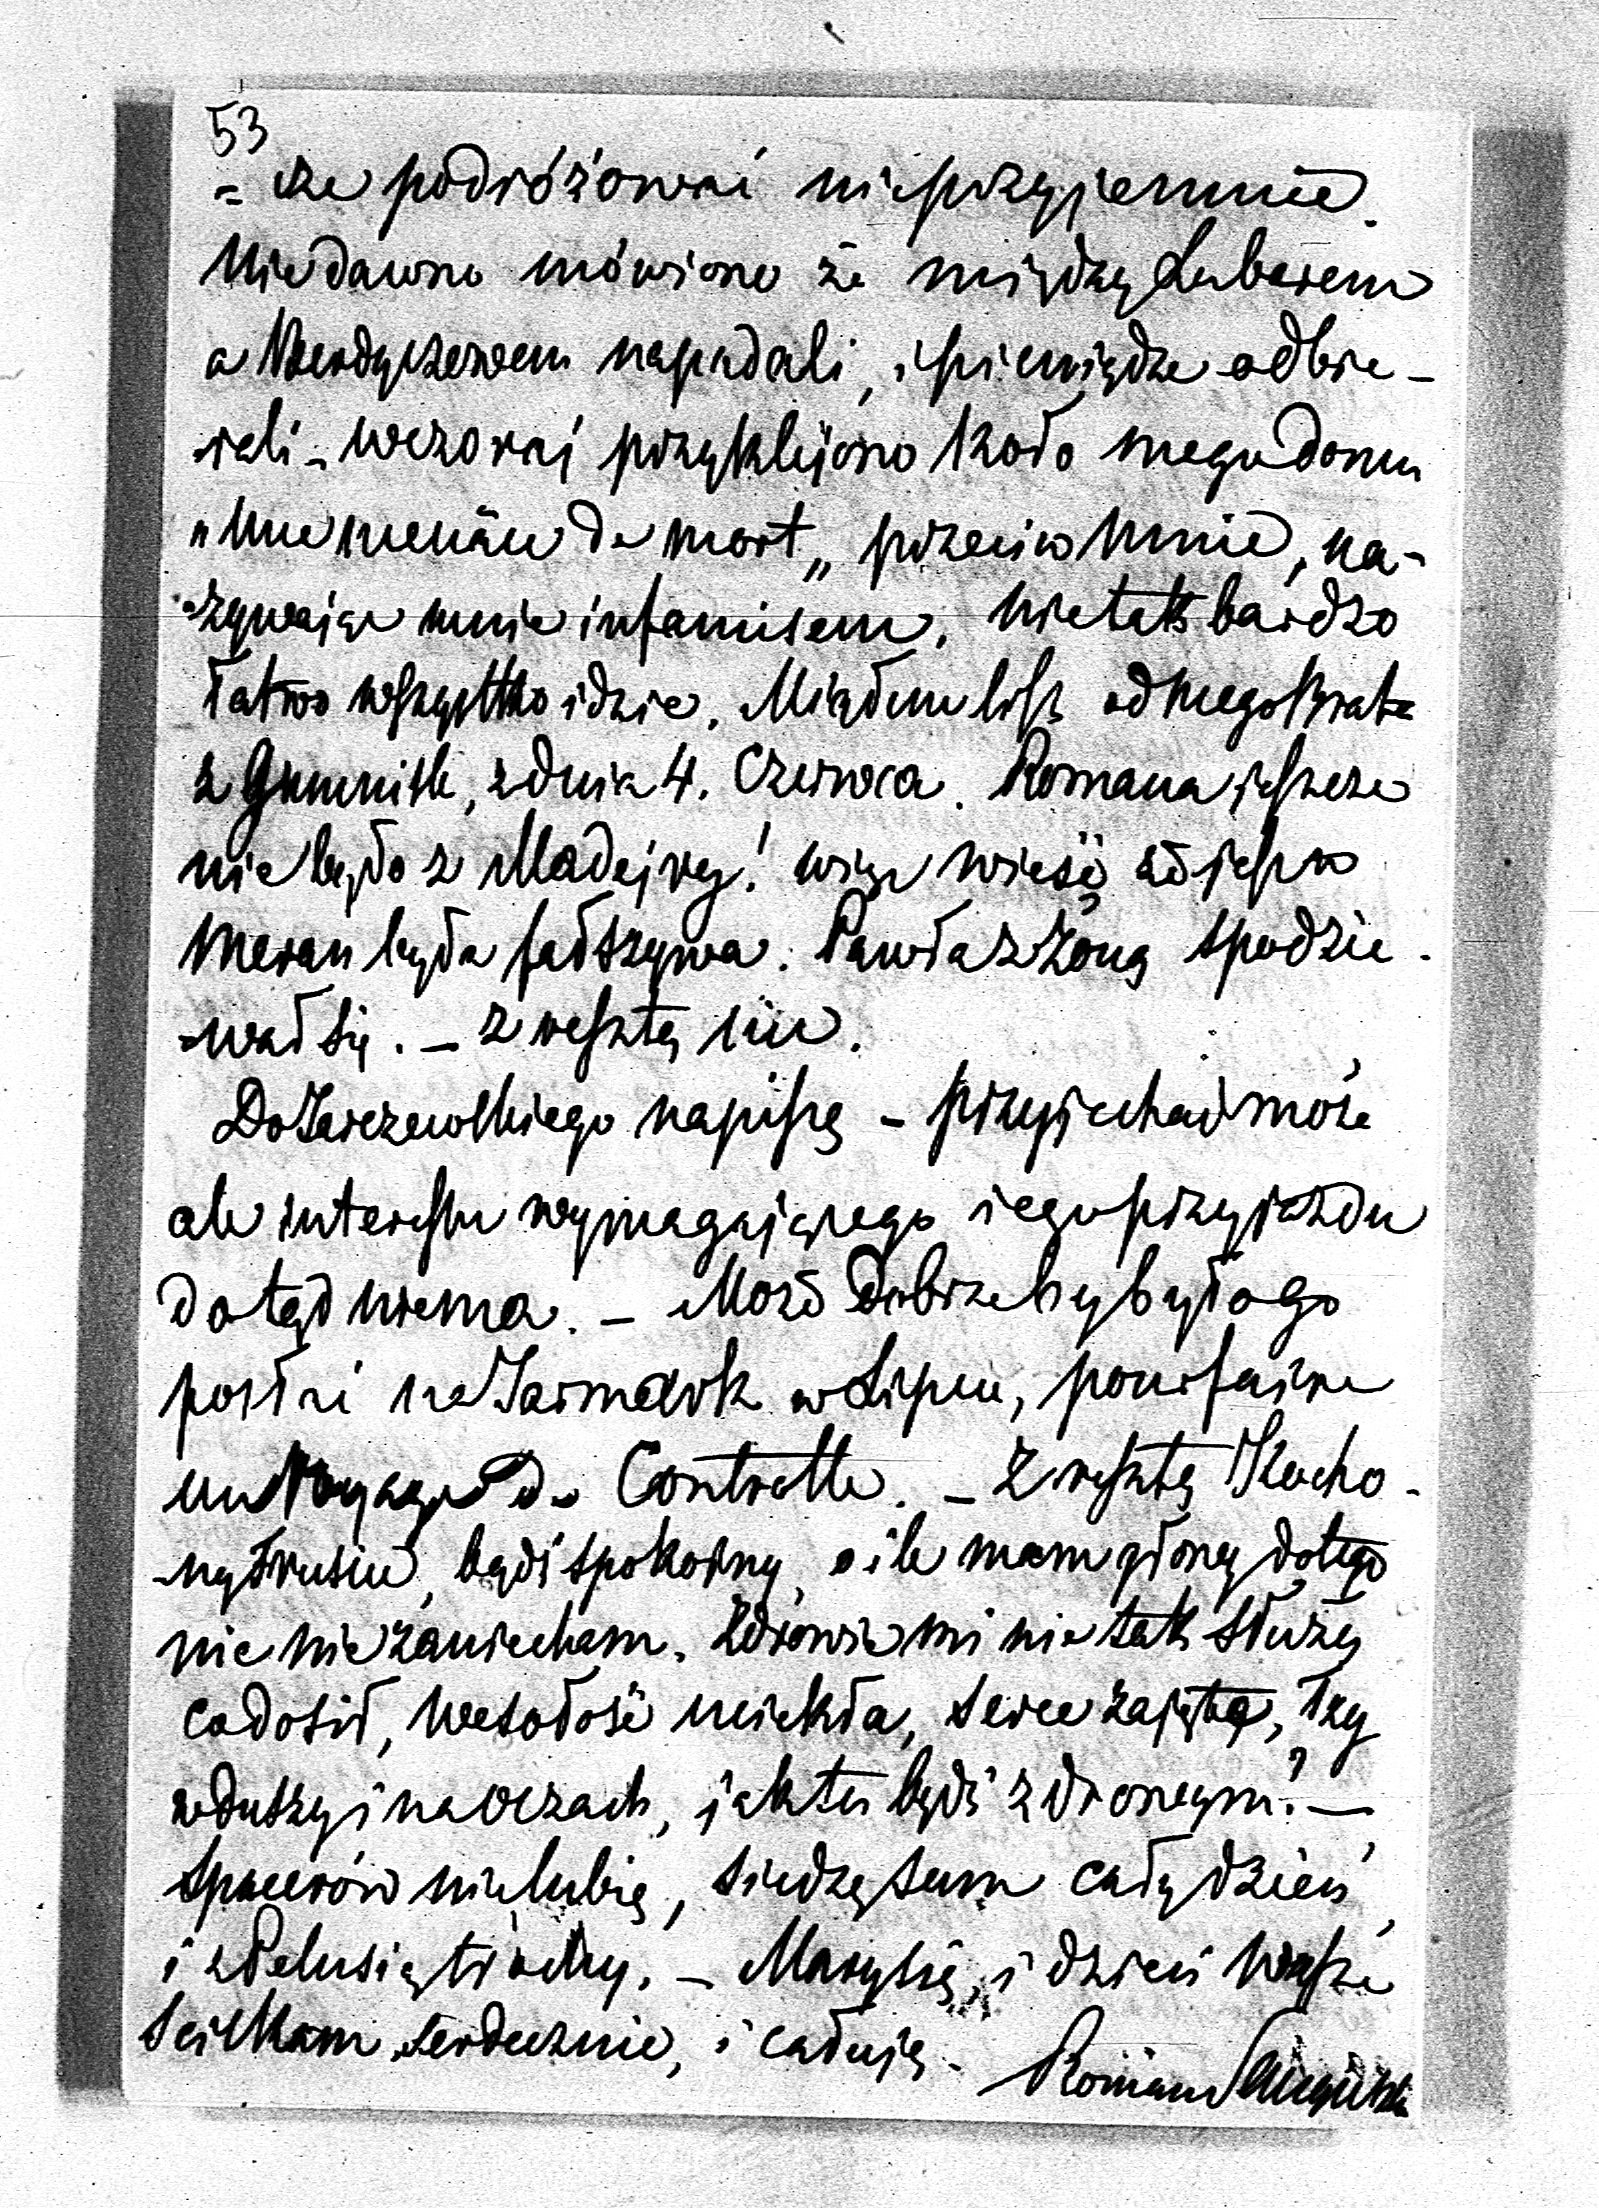 53
= że podróżować nieprzyjemnie.
Niedawno mówiono że między Lubarem
a Berdyczewem napadali, i pieniądze odbie-
rali - wczoraj przyklejono koło mego domu
"Une menace de mort" przeciw mnie, na-
zywając mnie infamisem, nie tak bardzo
łatwo wszystko idzie. Miałem list od mego brata
z Gumnisk, z dnia 4. Czerwca. Romana jeszcze
nie było z Madejry! więc wieść że jest w
Meran była fałszywa. Pawła z żoną spodzie-
=wał się. - Zresztą nic.
Do Jarczewskiego napiszę - przyjechać może
ale interesu wymagającego iego przyjazdu
dotąd niema. - Może dobrze by było go
posłać na Jarmark w Lipcu, pour faire
un Voyage de Contrette. - Zresztą Kocho-
-ny Trusiu, bądź spokojny, o ile mam głowę do tego
nic nie zaniecham. Zdrowie mi nie tak służy
co do sił, wesołość uciekła, serce zajęte, łzy
w duszy i na oczach, jak tu być zdrowym? -
Spacerów nie lubię, siedzę sam cały dzień,
i z Pelusią trochę. - Marysię i dzieci Wasze
ściskam serdecznie, i całuję - Roman Sanguszko